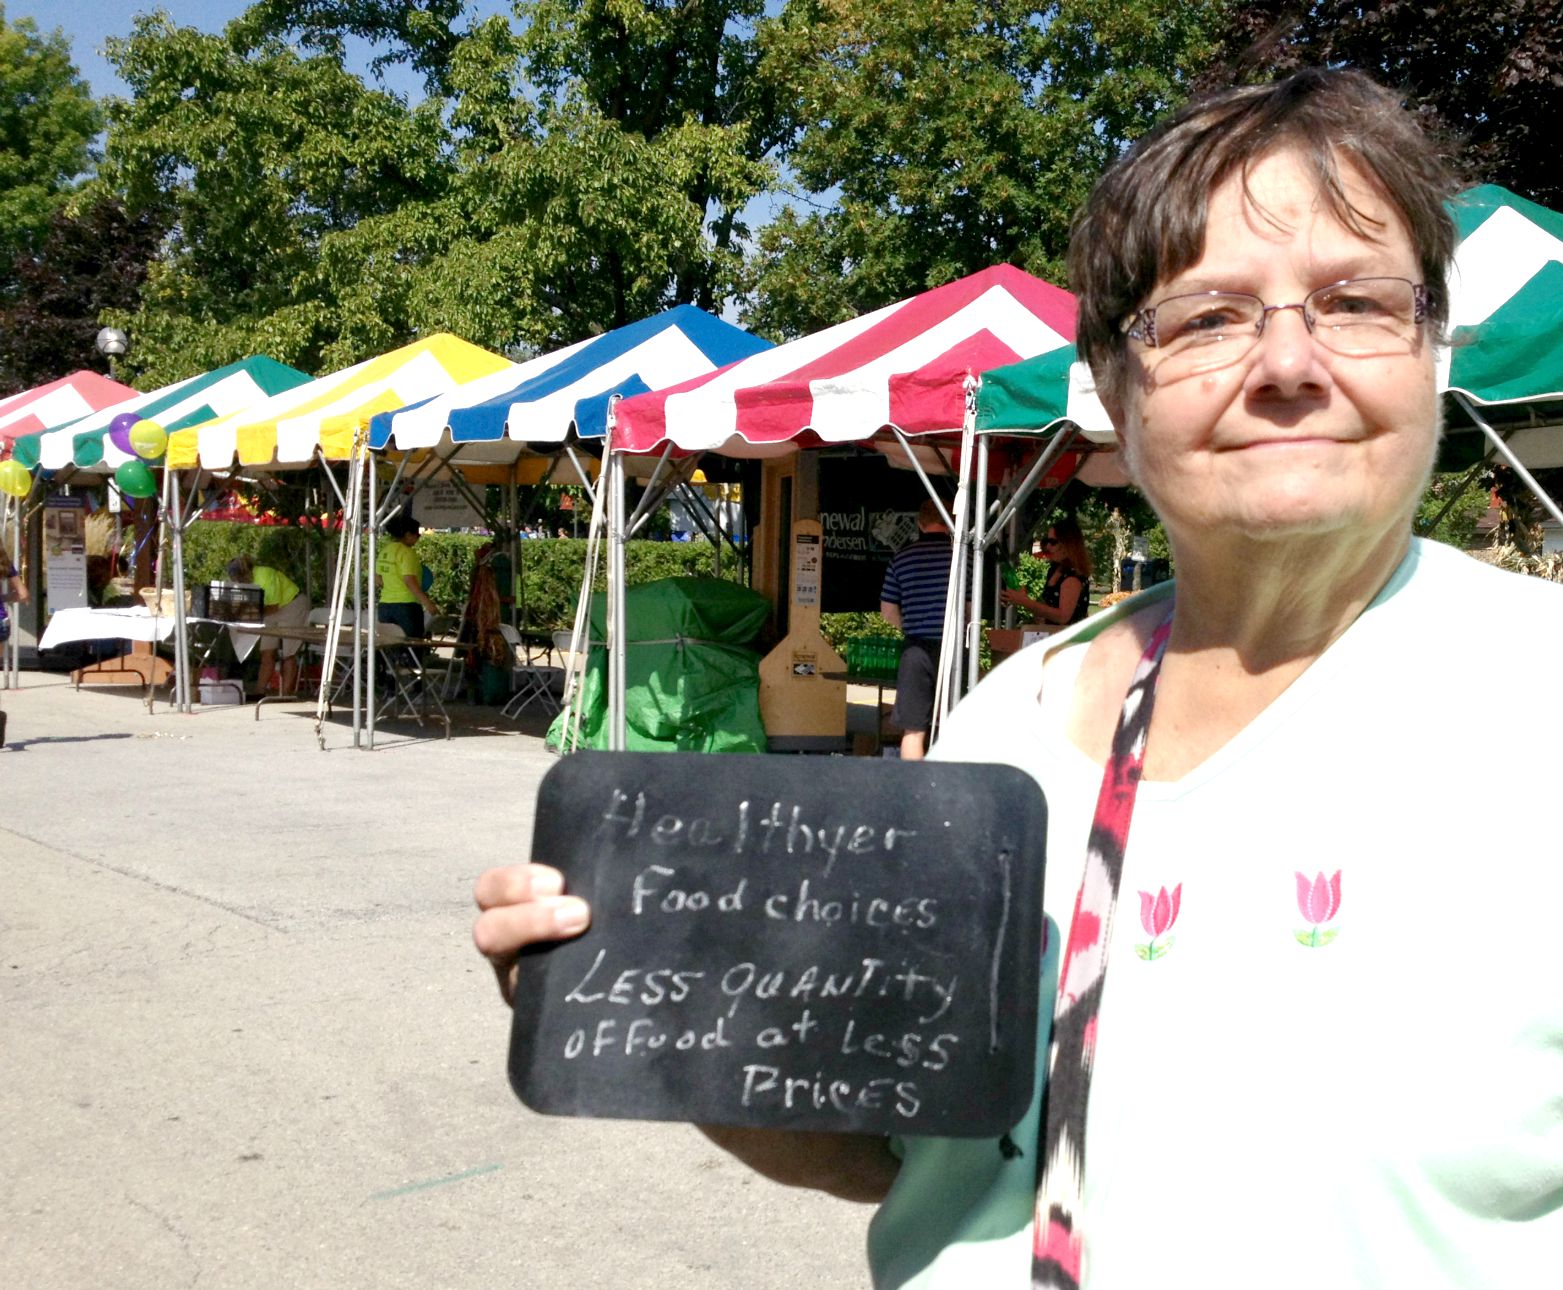 Healthyer
Food choices
LESS QUANTITY
OF Food at Less
PricES
newal
dersen